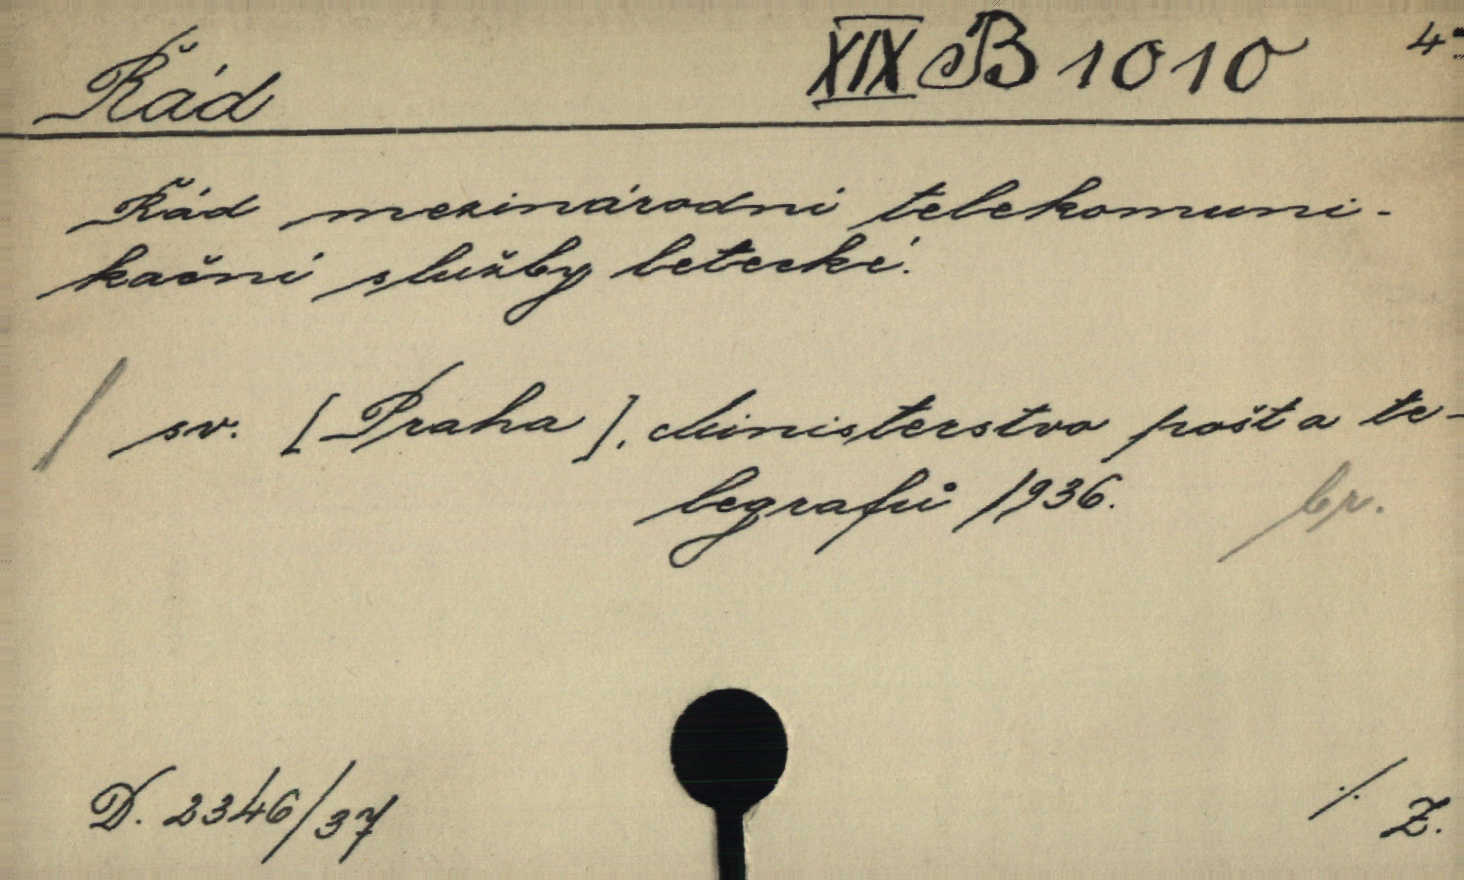 Řád XIX B 1010 4°
Řád mezinárodní telekomuni-
kační služby letecké.
/ sv. [Praha], Ministerstvo pošt a te-
legrafů 1936. br.
D. 2346/37 ·/. Z.